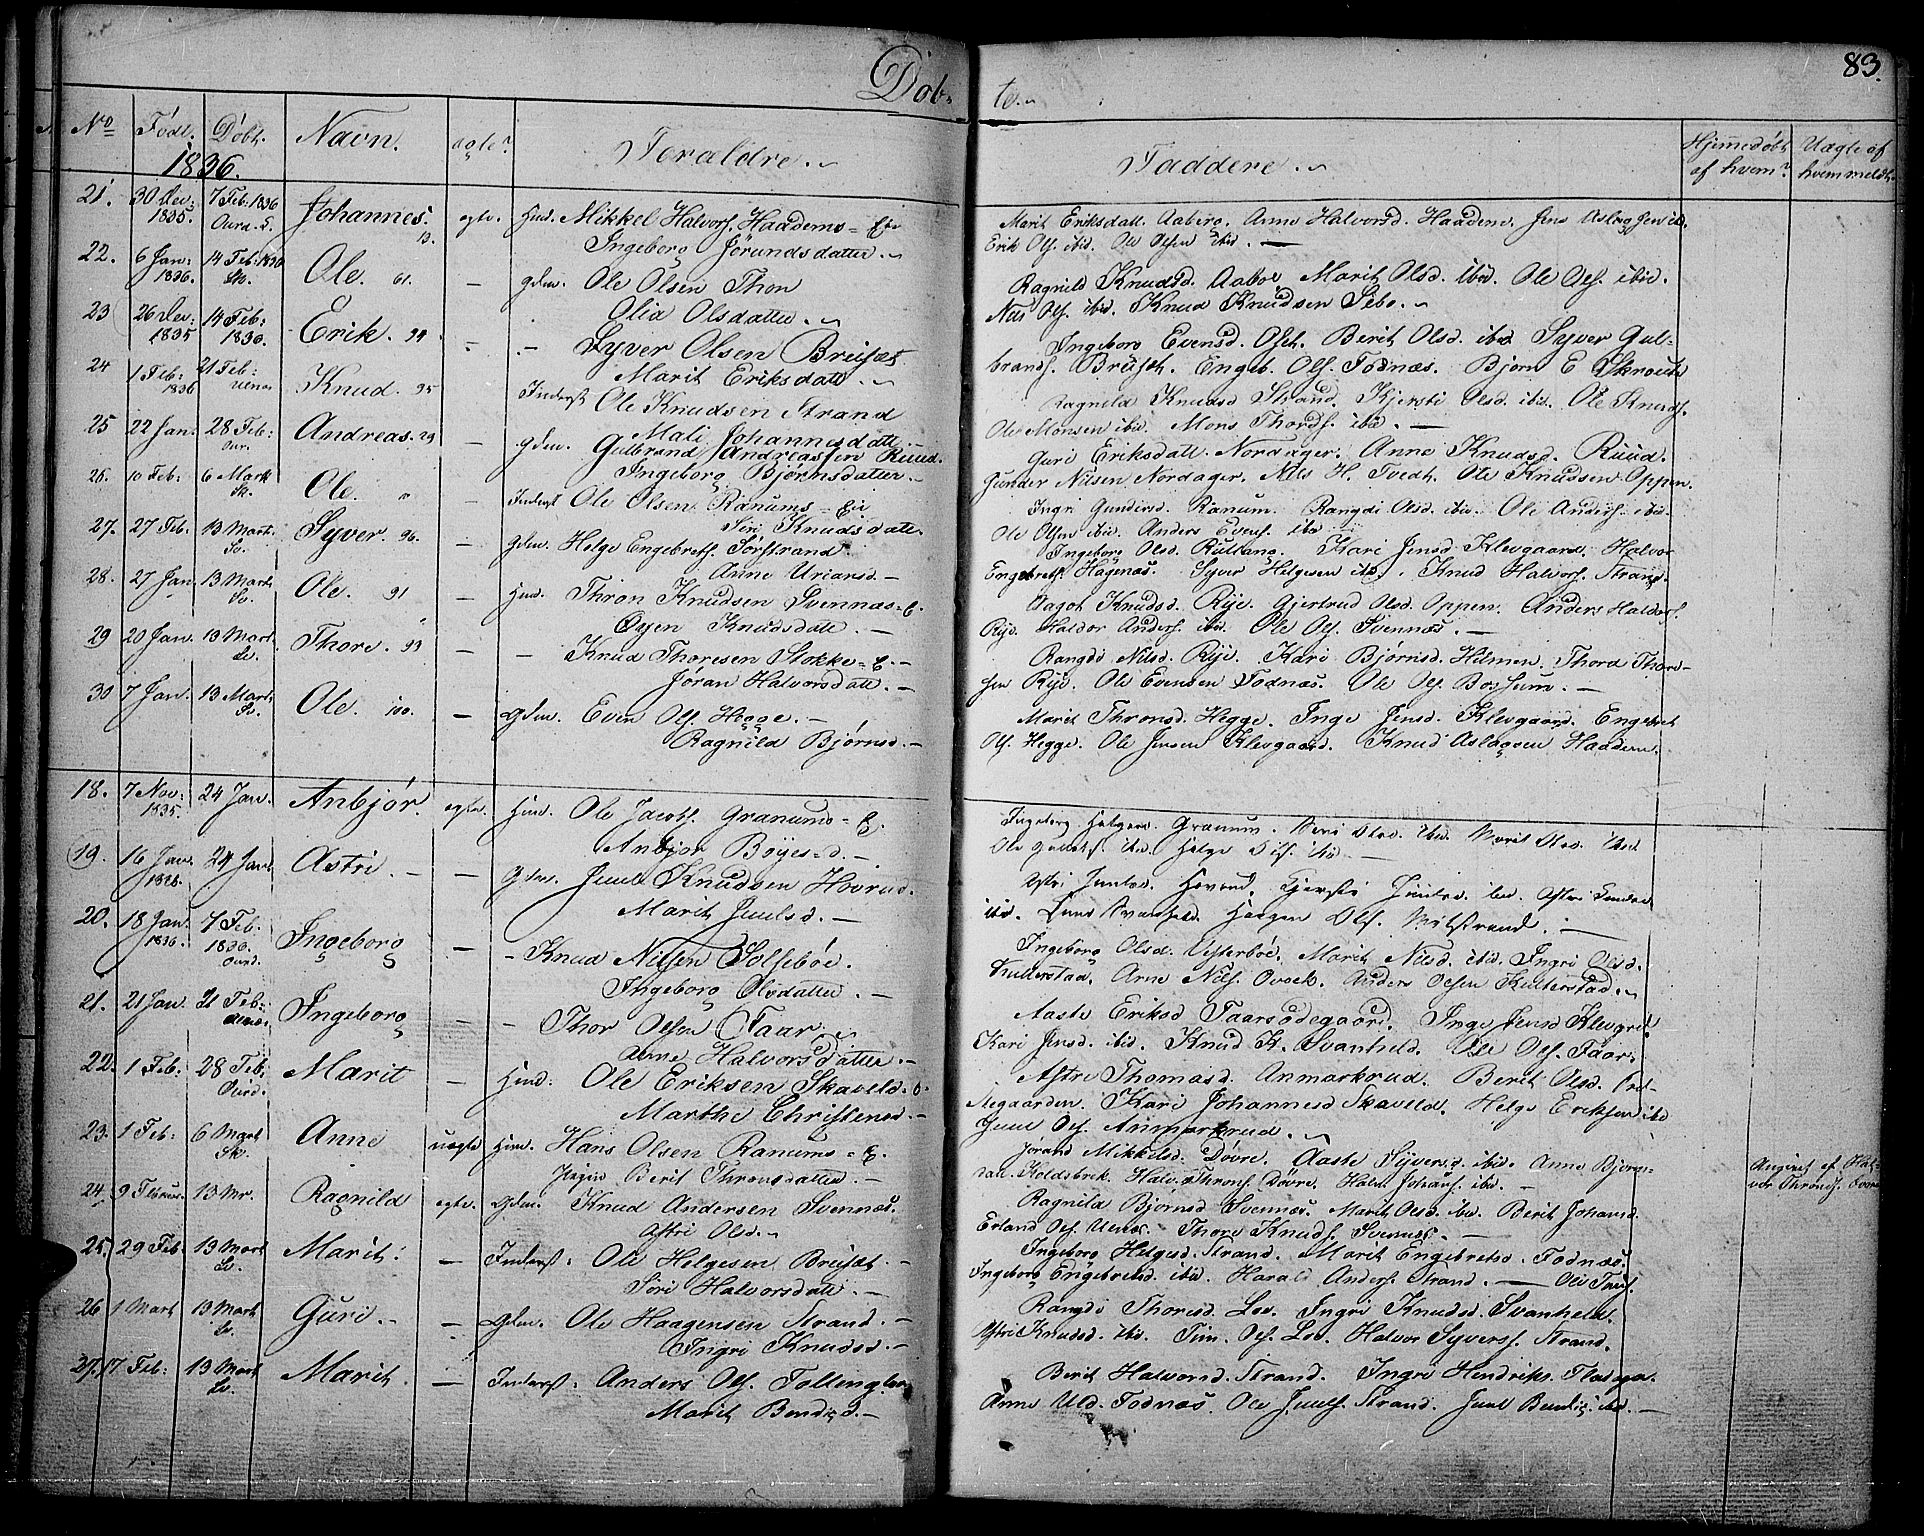 Døb-
te.
83.
No Født. Døbt. Navn. ægte? Forældre. Faddere. Hjemmedøbt af hvem? Uægte af hvem meldt.
1836.
21. 30 Dec: 1835. 7 Feb. 1836 Johannes. 13. egte. Hmd. Mikkel Halvors. Haadems = Eie
Ingeborg Jørundsdatter.
Marit Eriksdatt. Aaberg. Anne Halvorsd. Haadem. Jens Aslagsen ibd.
Erik Ols. ibid. Ole Olsen ibid.
22. 6 Jan: 1836. 14 Feb: 1836 Sk. Ole. 61. — Gdm. Ole Olsen Thon
Olia Olsdatter.
Ragnild Knudsd. Aabøe, Marit Olsd. ibid. Ole Ols. ibid.
Nils Ols. ibid. Knud Knudsen Sebo.
23 26 Dec: 1835 14 Feb: 1836. Erik. 94. - - Syver Olsen Bruset
Marit Eriksdatt.
Ingeborg Evensd. Berit Olsd. ibid Syver Gul-
brands. Bruseth. Engeb. Ols. Fodnæs. Bjørn E Skrouth
24 1 Feb: 1836 21 Feb: Ulnes Knud. 95 Inderst Ole Knudsen Strand
Mali Johannesdatt.
Ragnild Knudsd Strand, Kjersti Olsd. ibid. Ole Knuds.
Ole Monsen ibid. Mons Thords. ibid.
25 22 Jan. 28 Feb: Aur. Andreas. 29 — Gdm. Gulbrand Andreassen Ruud.
Ingeborg Bjørnsdatter.
Guri Eriksdatt. Nordager. Anne Knudsd. Ruud.
Gunder Nilsen Nordager. Nils H. Tvedt. Ole Knudsen Oppen.
26. 10 Feb: 6 Marts Sk. Ole. " - Inderst Ole Olsen Ranums = Eie
Siri Knudsdatt.
Ingri Gundersd. Ranum. Rangdi Olsd. ibid. Ole Anders. ibid.
Ole Olsen ibid. Anders Evens. ibid
27. 27 Feb. 13 Mart. Sv. Syver. 96. — Gdm. Helge Engebreths. Sørstrand.
Anne Uriansd.
Ingeborg Olsd. Kari Jensd. Klevgaard. Halvor
Engebreths. Hagenæs. Syver Helgesen ibd. Knud Halvors. Strand.
28. 27 Jan. 13 Mart: Sv. Ole. 91 — Hmd. Thron Knudsen Svennæs = E.
Knudsdatt.
Knudsd. Rye. Gjertrud Olsd. Oppen. Anders Haldors.
Rye. Haldor Anders. ibid. Ole Ols. Svennæs.
29 20 Jan. 13 Mart. Sv. Thore. 93 — - Knud Thoresen Stokke = E.
Jøran Halvorsdatt.
Rangdi Nilsd. Rye. Kari Bjørnsd. Hilmen. Thord Thord-
sen Rye. Ole Evensen Fodnæs. Ole Ols.
30 7 Jan. 13 Mart. Sv. Ole. 100. — Gdm. Even Ols. Hegge.
Ragnild Bjørnsd.
Marit Thronsd. Hegge. Inge Jensd. Klevgaard. Engebret
Ols. Hegge. Ole Jensen Klevgaard. Knud Aslagsen Haadem.
18. 7 Nov: 1835. 24 Jan. Anbjør. egte. Hmd. Ole Jacobs. Granums = E.
Anbjør Boyesd.
Ingeborg Helgesd. Granum. Siri Olsd. ibid. Marit Olsd. ibid.
Ole ibd. Helge Ols. ibd.
19. 16 Jan. 1836. 24 Jan. Astri. — Gdm. Juul Knudsen Hovrud.
Marit Juulsd.
Astri Juulsd. Hovrud. Kjersti Juulsd. ibid.
ibid. Ols.
20. 18 Jan. 1836. 7 Feb. 1836. Aurd. Ingeborg — - Knud Nilsen Solsebøe.
Ingeborg Olsdatter.
Ingeborg Olsd. Vesterbøe. Marit Nilsd. ibid. Ingri Olsd.
Kulterstad. Arne Nils. Anders Olsen Kulterstad.
21. 21 Jan. 21 Feb: Ulnæs Ingeborg - - Thor Olsen Faar.
Anne Halvorsdatter.
Aaste Eriksd Faarsødegaard. Inge Jensd Klevgrd.
Kari Jensd. ibid. Knud K. Svanheld. Ole Ols. Faar.
22. 1 Feb: 28 Feb. Aurd. Marit — Hmd: Ole Eriksen Skaveld. E.
Marthe Christensd.
Astri Thomasd. Anmarkrud. Berit Olsd.
Kari Johannesd Skaveld. Helge Eriksen ibd
Juul Ols. Anmarkrud.
23. 1 Feb: 6 Mart Sk. Anne uægte Hmd. Hans Olsen Ranums = E.
Pigen Berit Thronsdatter.
Jørand Mikkelsd. Døvre. Aaste Syversd. ibid. Anne Bjørns-
datt. Koldsbrek. Halv. Throns. Døvre. Halv. Johans. ibid.
Angivet af Hal-
vor Throns. Døvre
24. 9 Februar. 13 Mr. Ragnild egte. Gdm. Knud Andersen Svennæs.
Astri Olsd.
Ragnild Bjørnsd Svennæs. Marit Olsd. ibd. Berit Johansd.
Erland Ols. Ulnæs. Thore Knuds. Svennæs.
25. 29 Feb 13 Mart Sv. Marit. — Inderst. Ole Helgesen Bruset.
Siri Halvorsdatt.
Ingeborg Helgesd. Strand. Marit Engebretsd. Fodnæs.
Ingeborg Engebretsd. ibid. Harald Anders. Strand. — Ole
26 1 Mart 13 Mart Sv. Guri. — Gdm. Ole Haagensen Strand.
Ingri Knudsd.
Rangdi Thoresd. Lov. Ingri Knudsd. Svanheld.
Astri Knudsd. ibd. Tim. Ols. Lov. Halvor Syvers. Strand.
27. 17 Feb: 13 Mart Sv. Marit. — Inderst: Anders Ols.
Marit Bendixd.
Berit Halvorsd. Strand. Ingri Hendriks.
Anne Fodnæs. Ole Juuls. Strand. Juul Bendix. ibd.